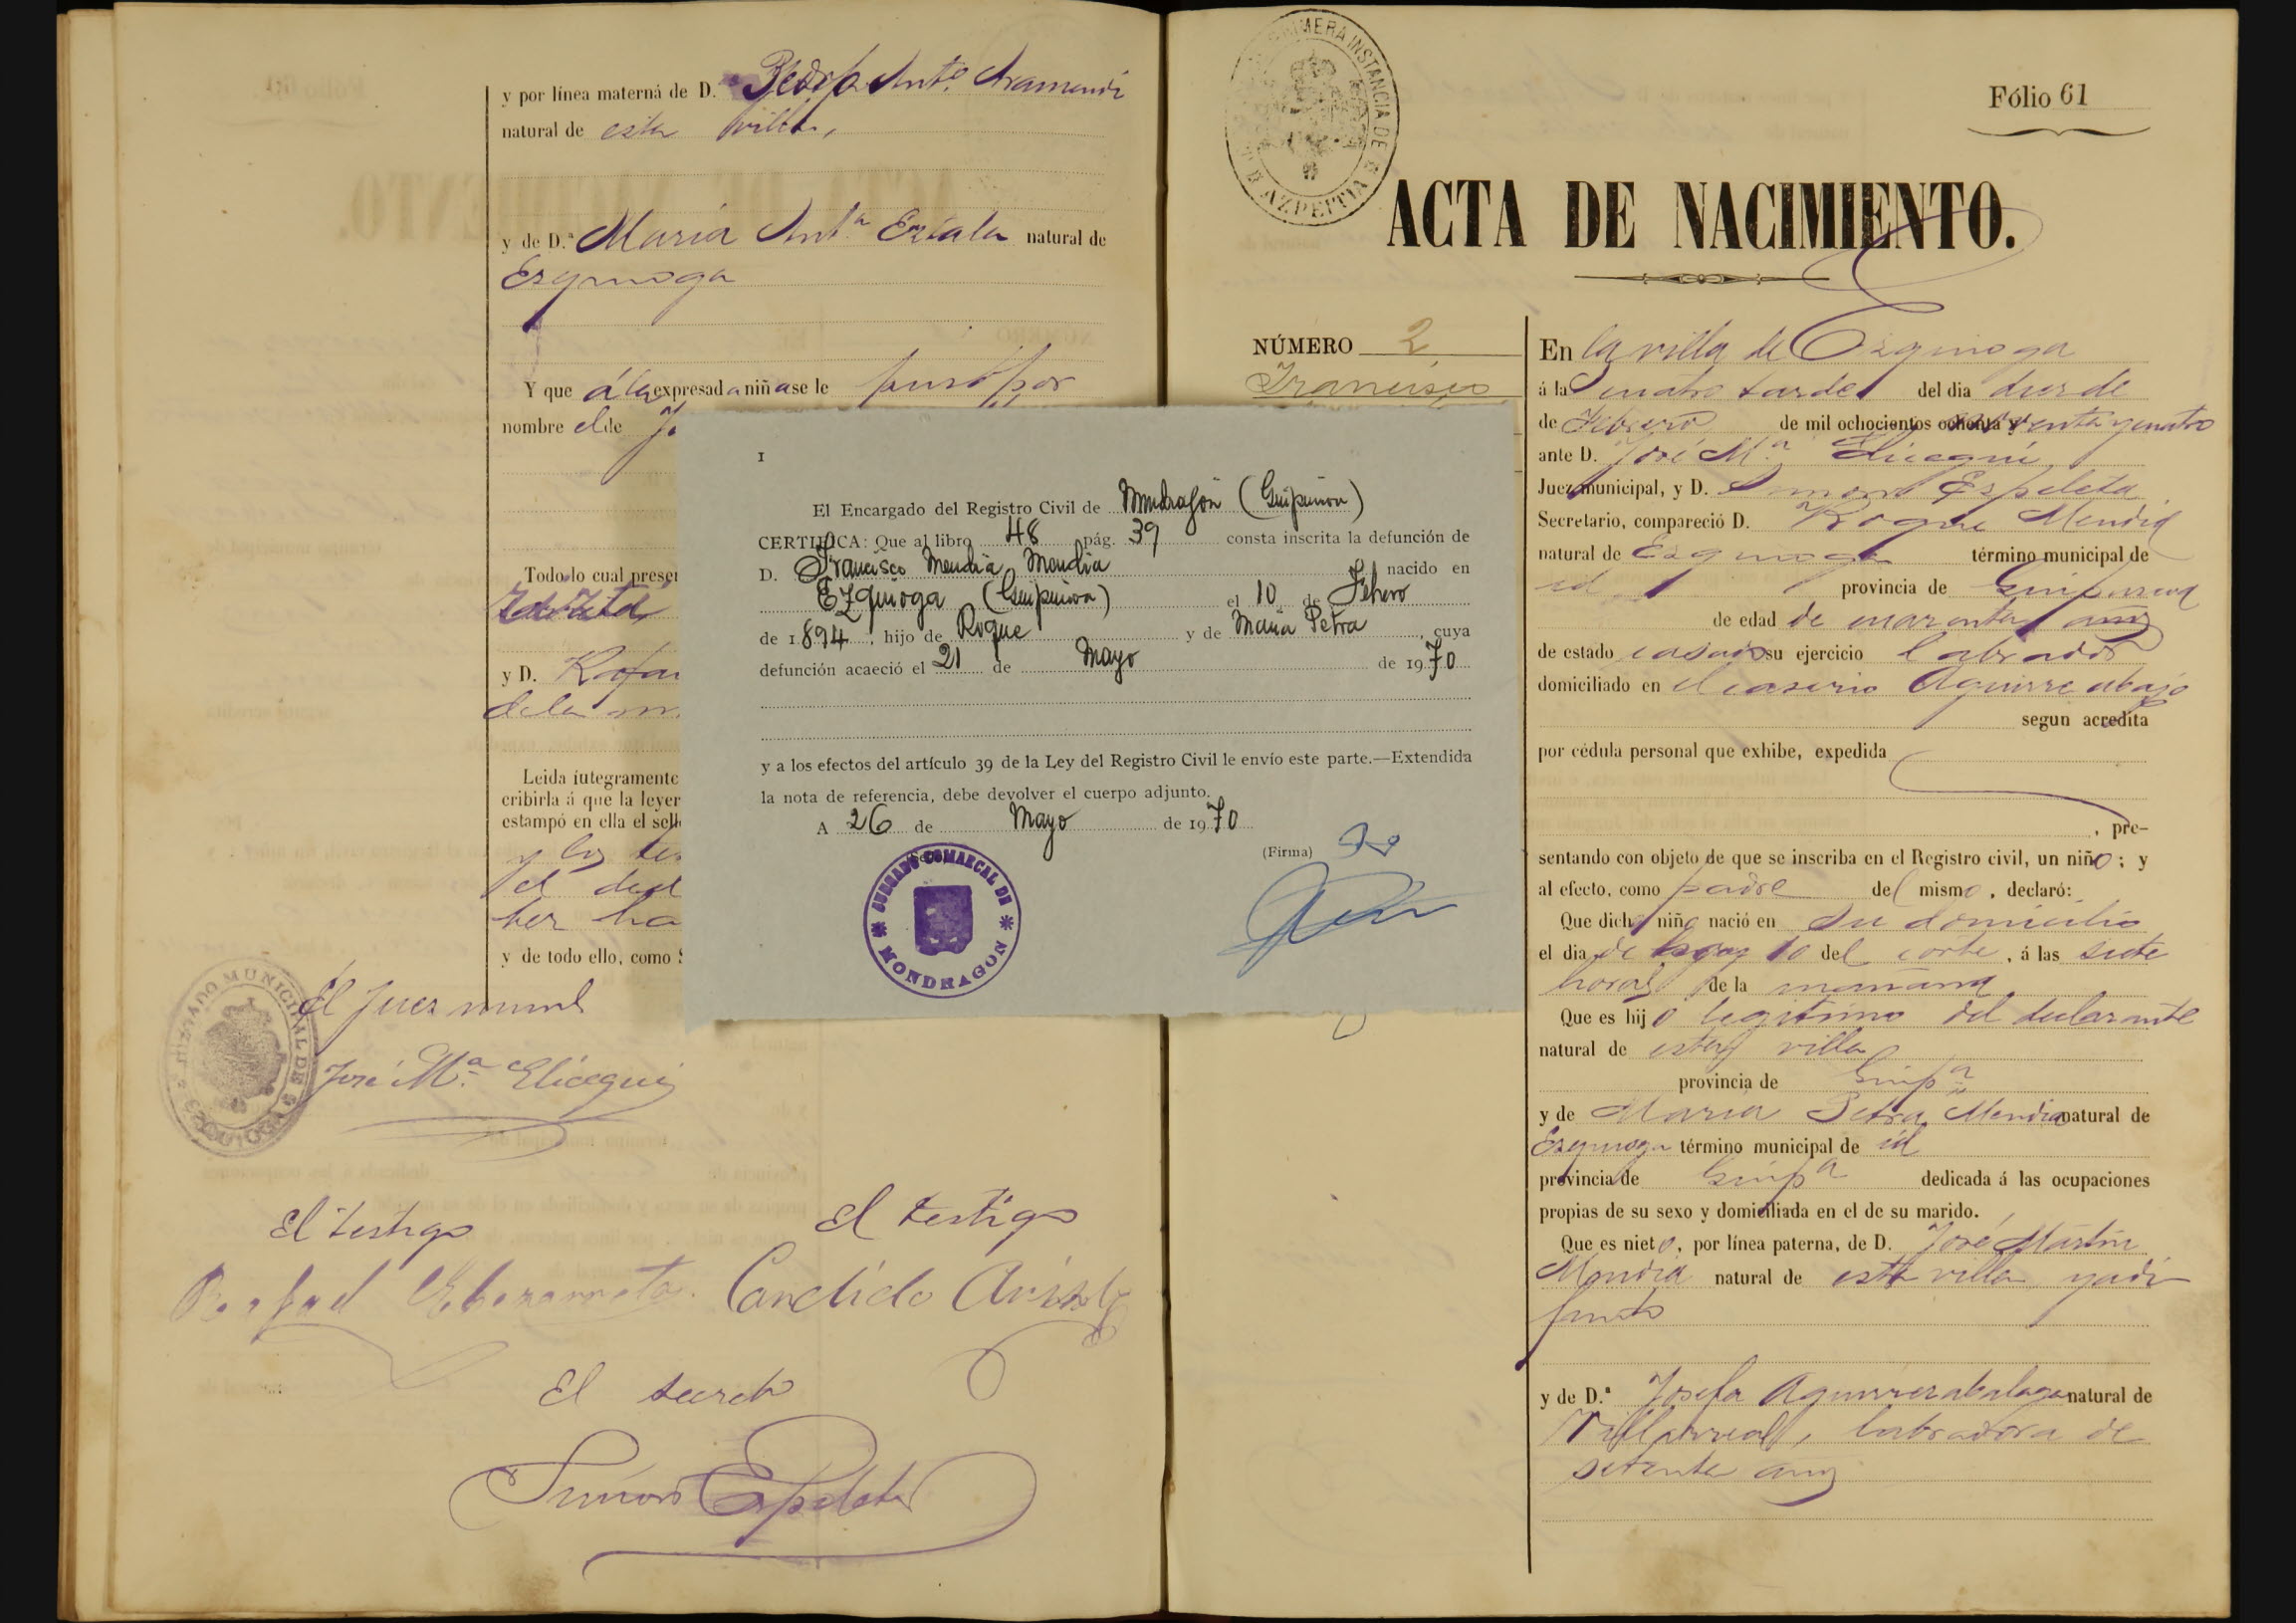 y por línea materna de D. Pedro Antº Aramendi
natural de esta villa,
y de D.ª María Antª Eziala natural de
Ezquioga
Y que á la expresada niña se le puso por
nombre el de
Todo lo cual presen
y D. Rafa
de la
Leida íntegramente
cribirla á que la leyer
estampó en ella el sell
y los tes
el decl
ber ha
y de todo ello, como S
El Juez munl
José Mª Elicegui
JUZGADO MUNICIPAL DE EZQUIOGA
El testigo
El testigo
Rafael
Candido
El Secreto
Simon Espeleta
I
El Encargado del Registro Civil de Mondragón (Guipúzcoa)
CERTIFICA: Que al libro 48 pág. 39 consta inscrita la defunción de
D. Francisco Mendia Mendia nacido en
Ezquioga (Guipúzcoa) el 10 de Febrero
de 1894, hijo de Roque y de María Petra, cuya
defunción acaeció el 21 de Mayo de 1970
y a los efectos del artículo 39 de la Ley del Registro Civil le envío este parte.—Extendida
la nota de referencia, debe devolver el cuerpo adjunto.
A 26 de Mayo de 1970
(Firma)
JUZGADO COMARCAL DE MONDRAGON
PRIMERA INSTANCIA DE AZPEITIA
Fólio 61
ACTA DE NACIMIENTO.
NÚMERO 2
Francisco
En la villa de Ezquioga
á la cuatro tarde del dia diez de
de Febrero de mil ochocientos noventa y cuatro
ante D. José Mª Elicegui
Juez municipal, y D. Simon Espeleta
Secretario, compareció D. Roque Mendia
natural de Ezquioga término municipal de
id provincia de Guipuzcoa
de edad de cuarenta años
de estado casado su ejercicio labrador
domiciliado en el caserio Aguirre abajo
segun acredita
por cédula personal que exhibe, expedida
, pre-
sentando con objeto de que se inscriba en el Registro civil, un niño; y
al efecto, como padre del mismo, declaró:
Que dicho niño nació en su domicilio
el dia de hoy 10 del corte, á las siete
horas de la mañana
Que es hijo legitimo del declarante
natural de esta villa
provincia de Guipª
y de Maria Petra Mendia natural de
Ezquioga término municipal de id
provincia de Guipª dedicada á las ocupaciones
propias de su sexo y domiciliada en el de su marido.
Que es nieto, por línea paterna, de D. José Martin
Mendia natural de esta villa y a di
funto
y de D.ª Josefa Aguirrezabalaga natural de
Villarreal, labradora de
setenta años